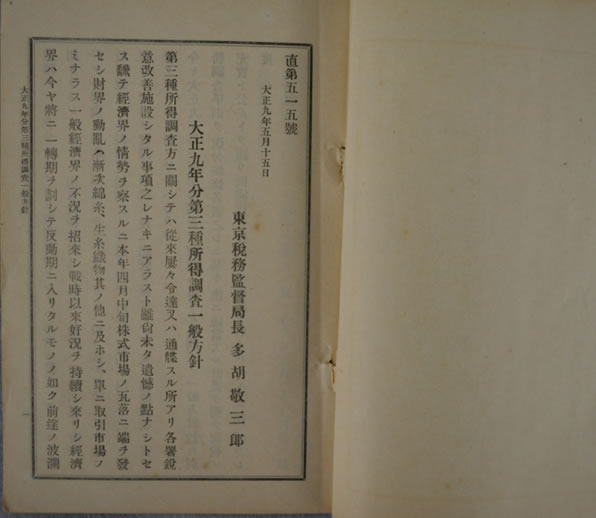 直第五一五號
大正九年五月十五日
東京稅務監督局長 多胡敬三郎
大正九年分第三種所得調査一般方針
第三種所得調査方ニ關シテハ從來屢々令達又ハ通牒スル所アリ各署銳
意改善施設シタル事項之レナキニアラスト雖尙未タ遺憾ノ點ナシトセ
ス飜テ經濟界ノ情勢ヲ察スルニ本年四月中旬株式市場ノ瓦落ニ端ヲ發
セシ財界ノ動亂ハ漸次綿糸、生糸織物其ノ他ニ及ホシ、單ニ取引市場ノ
ミナラス一般經濟界ノ不況ヲ招來シ戰時以來好況ヲ持續シ來リシ經濟
界ハ今ヤ將ニ一轉期ヲ劃シテ反動期ニ入リタルモノノ如ク前途ノ波瀾
大正九年分第三種所得調査一般方針
一